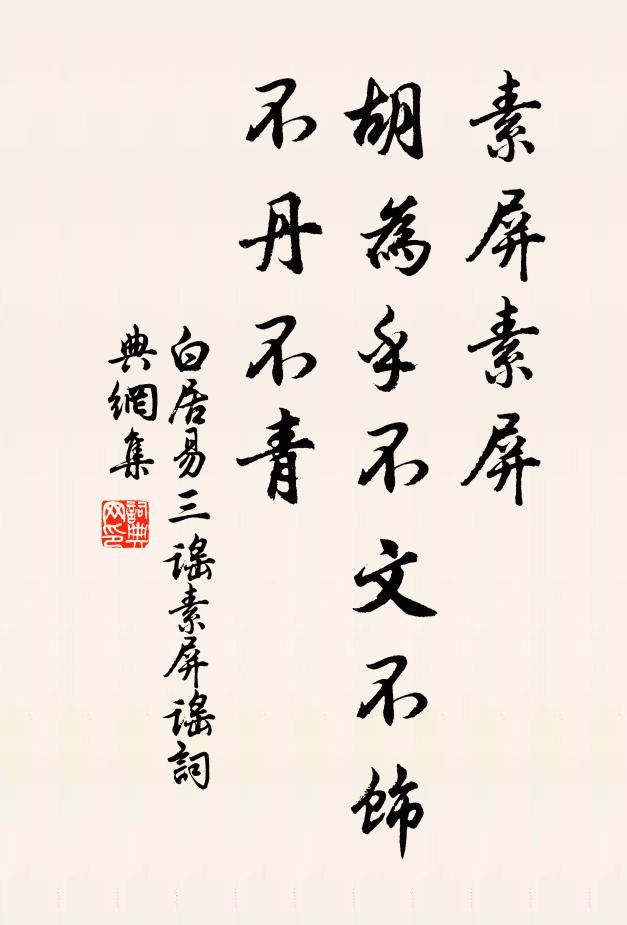 素屏素屏
胡為乎不文不飾
不丹不青
白居易三謠素屏謠詞
典網集
詞典
网印